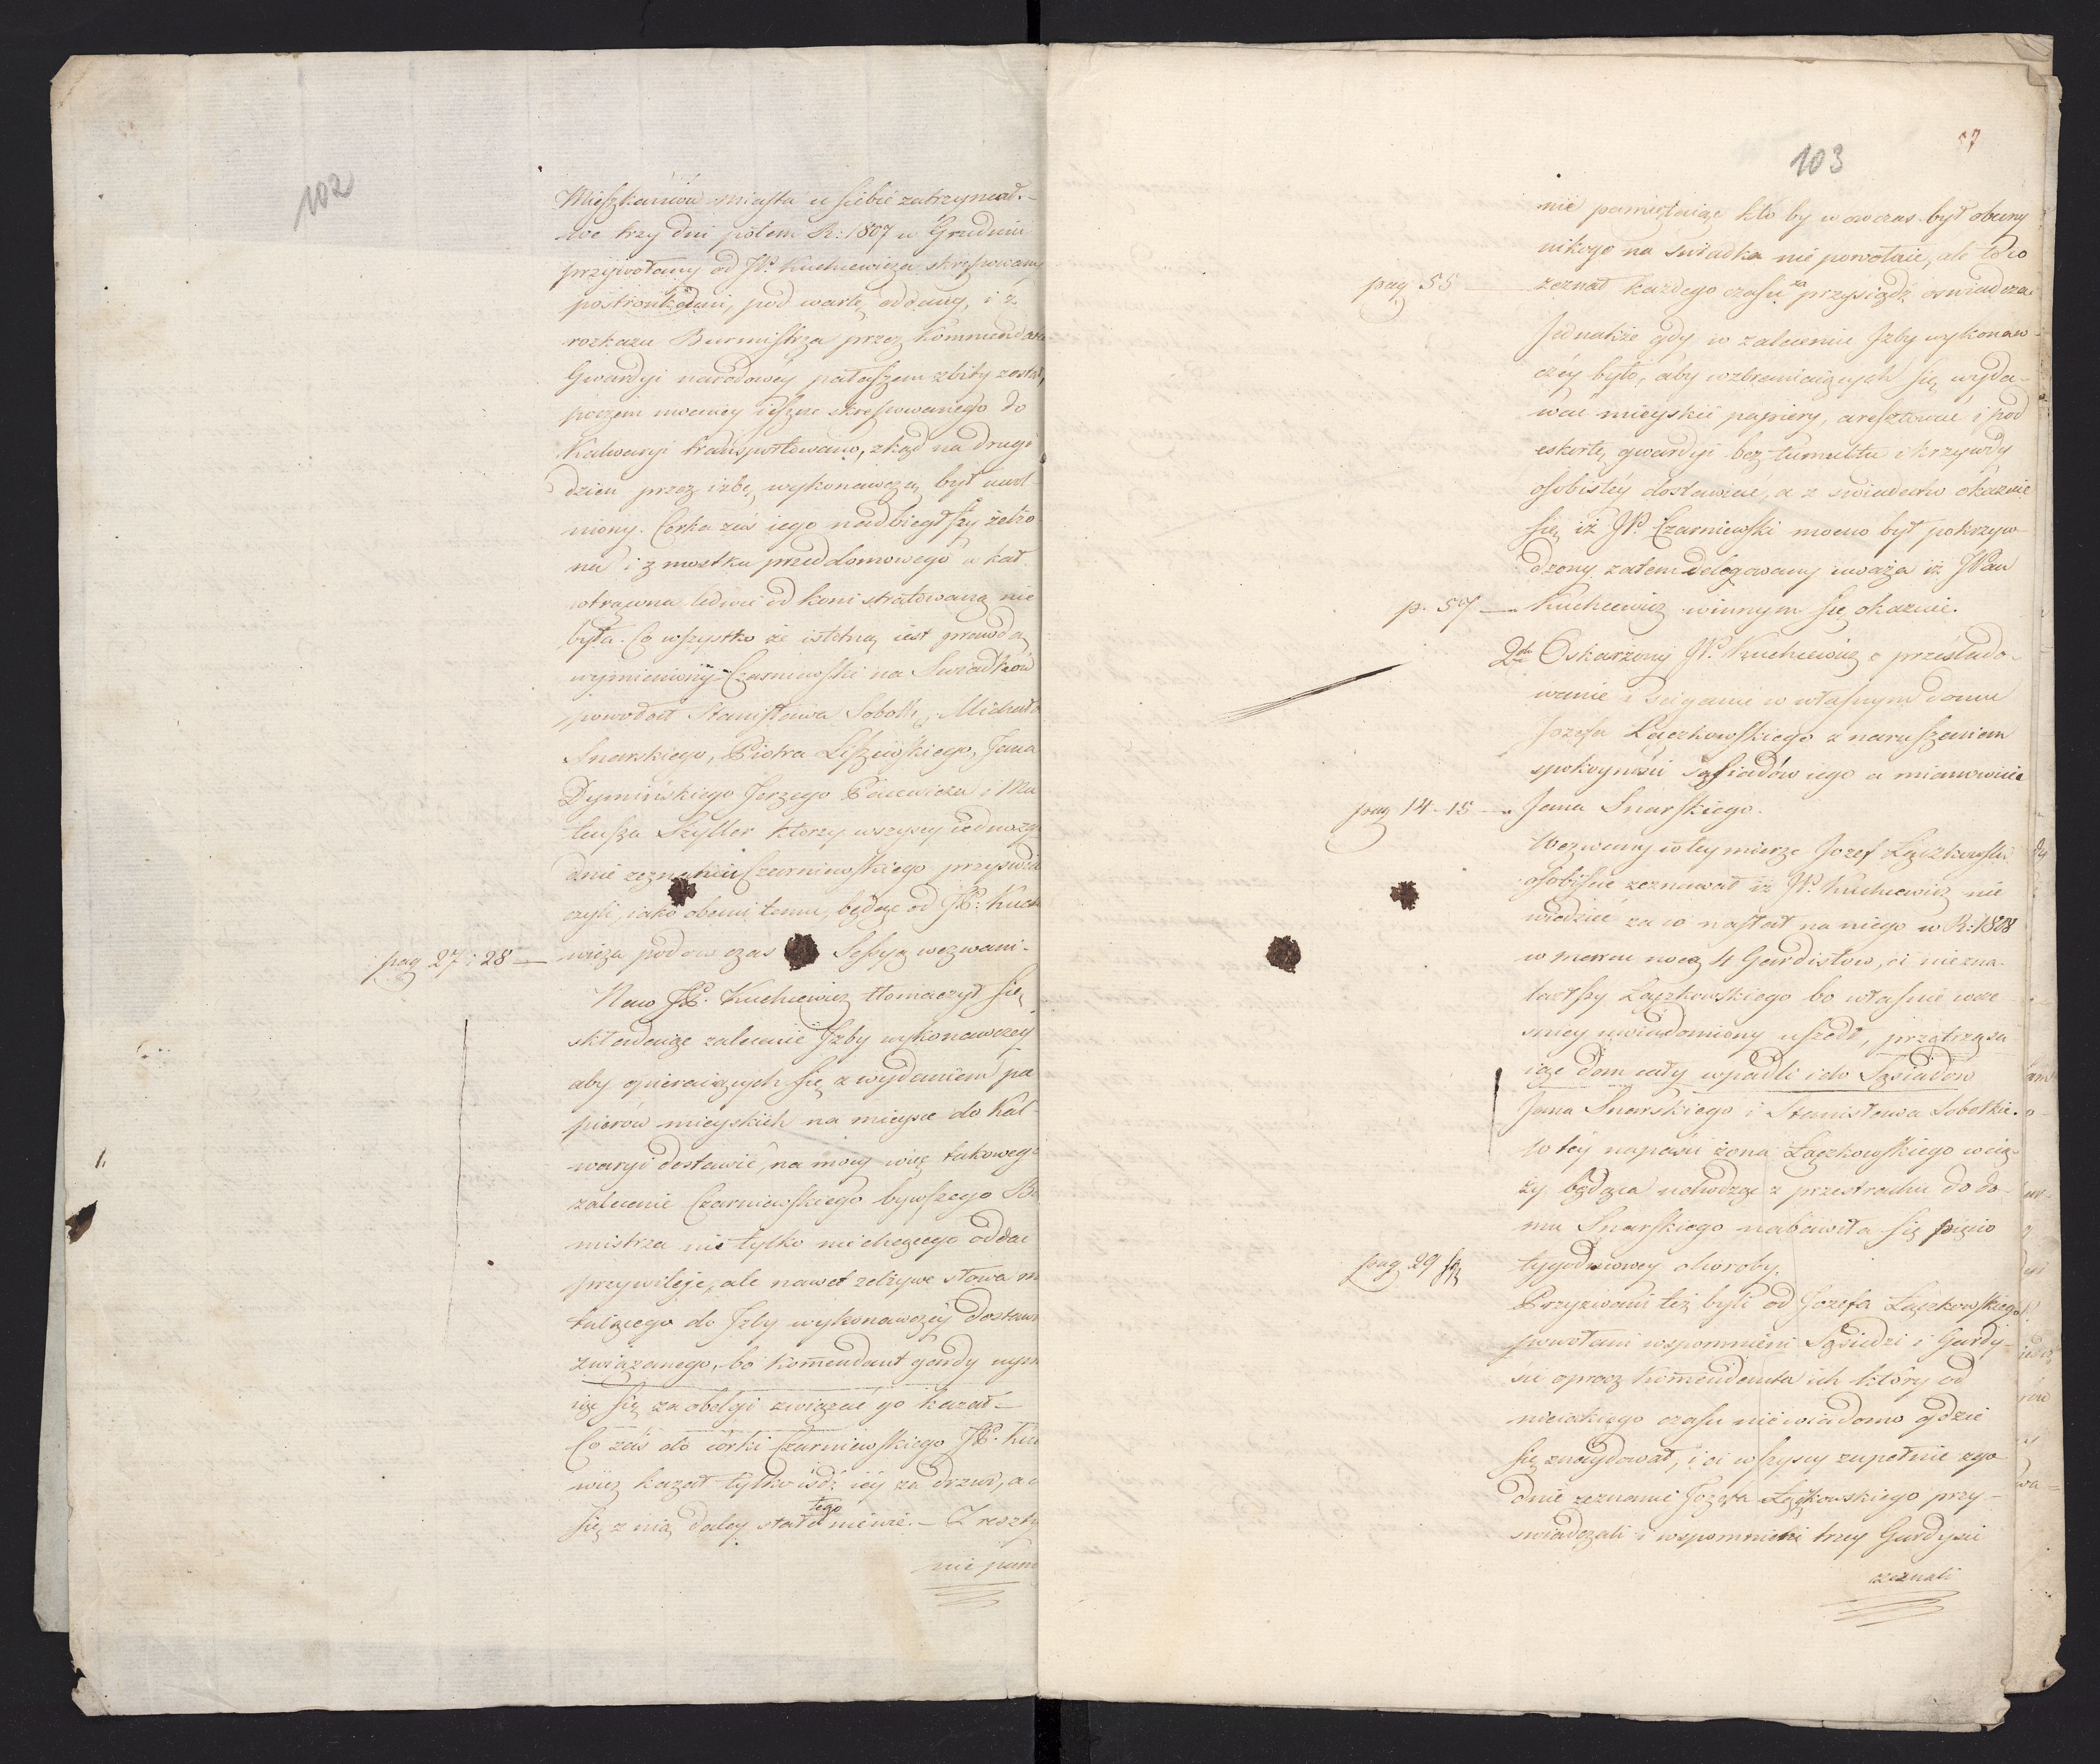 102
Mieszkańców miasta u siebie zatrzymał.-
we trzy dni potem R: 1807 w Grudniu
przywołany od JP. Kuchcewicza skrępowany
postronkami, pod wartę oddany, i z
rozkazu Burmistrza przez Kommendanta
Gwardyi narodowey pałaszem zbity został,
poczem mocniey ieszcze skrępowanego do
Kalwaryi transportowano, zkąd na drugi
dzień przez izbę wykonawczą był uwol-
niony. Corka zaś iego nadbiegłszy zelżo-
na i z mostku przed domowego w kał
wtrącona ledwie od koni stratowaną nie
była. Co wszystko że istotną iest prawdą
wymieniony Czarniewski na Swiadków
powodał Stanisława Sobotk, Michała
Snarskiego, Piotra Liszewskiego, Jana
Dymińskiego Jerzego Pacewicza i Ma
teusza Szyller ktorzy wszyscy iednozgo
dnie zeznanie Czarniewskiego przyswiad
czyli, iako obecni temu, będąc od JP. Kuch
wicza pod ow czas Sessyą wezwani-
pag 27 i 28 —
Na co JP. Kuchcewicz tłomaczył się,
składaiąc zalecenie Izby wykonawczey
aby opieraiących się z wydaniem pa
pierów mieyskich na mieysce do Kal-
waryi dostawić, na mocy więc takowego
zalecenie Czarniewskiego bywszego Bu
mistrza nie tylko niechcącego oddać
przywileje, ale nawet zelżywe słowa m
taiącego do Izby wykonawczéy dostaw
związanego, bo kommendant gardy
iąc się za obelgi związać go kazał-
Co zaś do córki Czarniewskiego JP. Kuc
wicz kazał tylko iśdź iéy za drzwi, a c
się z nią daley stało tego niewie.- Z reszty
nie pam
103
nie pamiętaiąc kto by w owczas był obecny
nikogo na swiadka nie powołuie, ale to co
pag 55 —
zeznał każdego czasu za przysiądź oswiadcza.
Jednakże gdy w zalecenie Izby wykonaw-
czéy było, aby wzbraniaiących się wyda-
wać mieyskie papiery, aresztować i pod
eskortę gwardyi bez tumultu i krzywdy
osobistéy dostawiać, a z swiadectw okazuie
się, iż JP. Czarniewski mocno był pokrzyw-
dzony zatem Delegowany uważa iż JPan
p. 57 —
Kuchcewicz winnym się okazuie.
2do Oskarżony JP. Kuchcewicz o prześlado-
wanie i sciganie w własnym domu
Jozefa Łączkowskiego z naruszeniem
spokoyności sąsiadów iego a mianowicie
pag 14-15 —
Jana Snarskiego.
Wezwany w tey mierze Jozef Łączkowski
osobiście zeznawał iż JP. Kuchcewicz nie
wiedzieć za co nasłał na niego w R: 1808
w marcu nocą 4 Gardistow, ci niezna-
lazłszy Łączkowskiego bo własnie wcze-
sniey uwiadomiony uszedł, przetrząsa-
iąc dom cały wpadli i do Sąsiadów
Jana Snarskiego i Stanisława Sobotki.
W téy napaści żona Łączkowskiego w cią-
ży będąca uchodząc z przestrachu do do-
mu Snarskiego nabawiła się pięcio
pag 29
tygodniowey choroby.
Przyzwani też byli od Jozefa Łączkowskiego
powołani wspomnieni Sąsiedzi i Gardy-
sci oprocz Kommendanta ich który od
nieiakiego czasu niewiadomo gdzie
się znaydował, i ci wszyscy zupełnie zgo-
dnie zeznanie Jozefa Łączkowskiego przy-
swiadczali i wspomnieni trzey Gardyści
zeznali